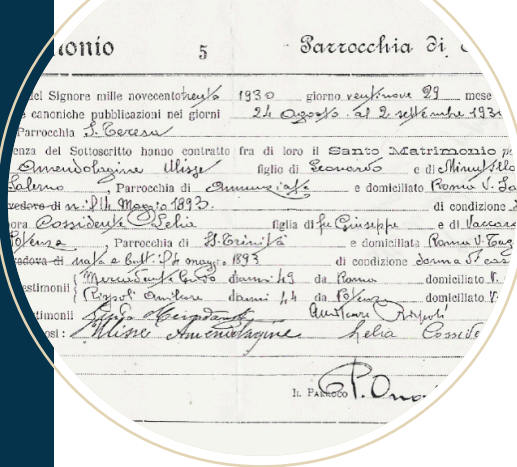 monio 5 Parrocchia di
del Signore mille novecentotrenta 1930 giorno ventinove 29 mese
e canoniche pubblicazioni nei giorni 24 Agosto al 2 settembre 193
Parrocchia S. Teresa
enza del Sottoscritto hanno contratto fra di loro il Santo Matrimonio
Amendolagine Ulisse figlio di Leonardo e di Minutillo
Salerno, Parrocchia di Annunziata e domiciliato Roma V.
vedovo di Maggio 1893. di condizione
ora Cossidente Lelia figlia di fu Giuseppe e di Vaccaro
Potenza, Parrocchia di S. Trinità e domiciliata Roma V.
vedova di nata e batt. il maggio 1893 di condizione donna di cas
estimonii Guido d'anni 49 da Roma domiciliato V.
Rispoli Amilcare d'anni 44 da Potenza domiciliato V.
stimonii Guido Amilcare Rispoli
osi: Ulisse Amendolagine Lelia Cosside
Il Parroco P.